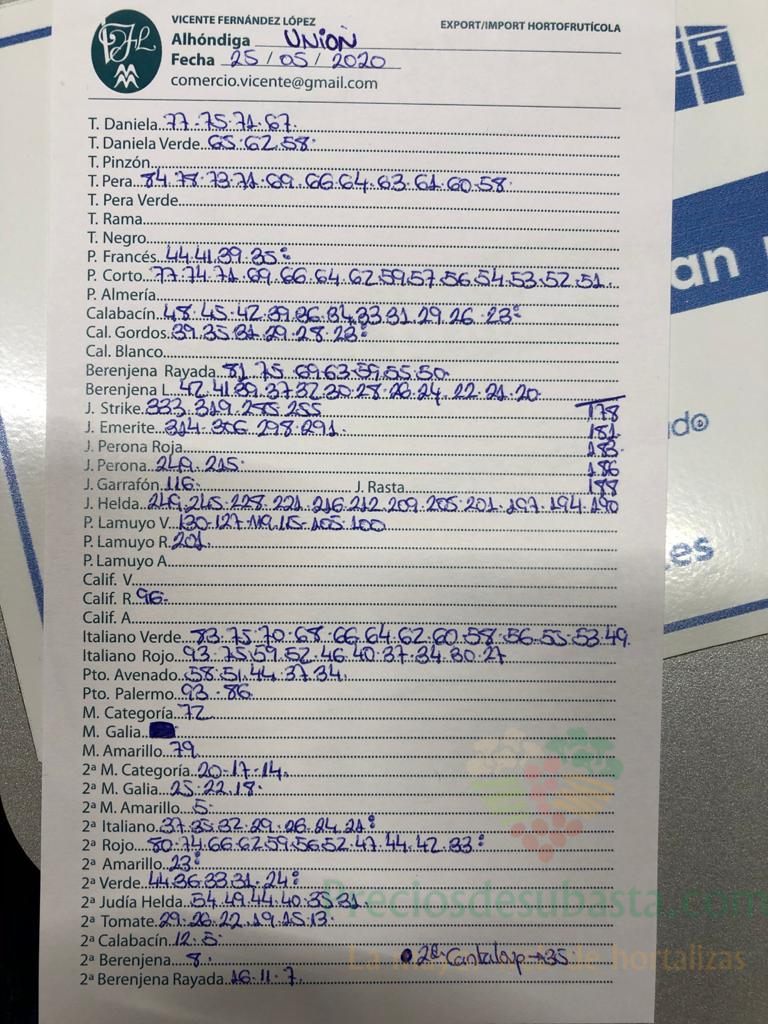 VICENTE FERNÁNDEZ LÓPEZ
EXPORT/IMPORT HORTOFRUTÍCOLA
Alhóndiga UNION
Fecha 25/05/2020
comercio.vicente@gmail.com
T. Daniela 77.75.71.67.
T. Daniela Verde 65.62.58.
T. Pinzón
T. Pera 84.78.73.71.69.66.64.63.61.60.58.
T. Pera Verde
T. Rama
T. Negro
P. Francés 44.41.39.35.
P. Corto 77.74.71.69.66.64.62.59.57.56.54.53.52.51.
P. Almería
Calabacín 48.45.42.39.36.34.33.31.29.26.23.
Cal. Gordos 39.35.31.29.28.23.
Cal. Blanco
Berenjena Rayada 81.75.69.63.59.55.50.
Berenjena L. 42.41.39.37.32.30.28.26.24.22.21.20.
J. Strike 333.319.285.255 178
J. Emerite 314.306.298.291. 181
J. Perona Roja 183
J. Perona 249.215. 186
J. Garrafón 116. J. Rasta 188
J. Helda 249.245.228.221.216.212.209.205.201.197.194.190
P. Lamuyo V. 130.127.119.115.105.100
P. Lamuyo R. 201.
P. Lamuyo A.
Calif. V.
Calif. R. 96.
Calif. A.
Italiano Verde 83.75.70.68.66.64.62.60.58.56.55.53.49.
Italiano Rojo 93.75.59.52.46.40.37.34.30.27
Pto. Avenado 58.51.44.37.34.
Pto. Palermo 93.86.
M. Categoría 72
M. Galia
M. Amarillo 79
2ª M. Categoría 20.17.14.
2ª M. Galia 25.22.18.
2ª M. Amarillo 5.
2ª Italiano 37.35.32.29.26.24.21.
2ª Rojo 80.74.66.62.59.56.52.47.44.42.33.
2ª Amarillo 23.
2ª Verde 44.36.33.31.24.
2ª Judía Helda 54.49.44.40.35.31.
2ª Tomate 29.26.22.19.15.13.
2ª Calabacín 12.5.
2ª Berenjena 8. 2ª Cantaloup → 35
2ª Berenjena Rayada 16.11.7.
Preciosdesubasta.com
de hortalizas
an
do
es